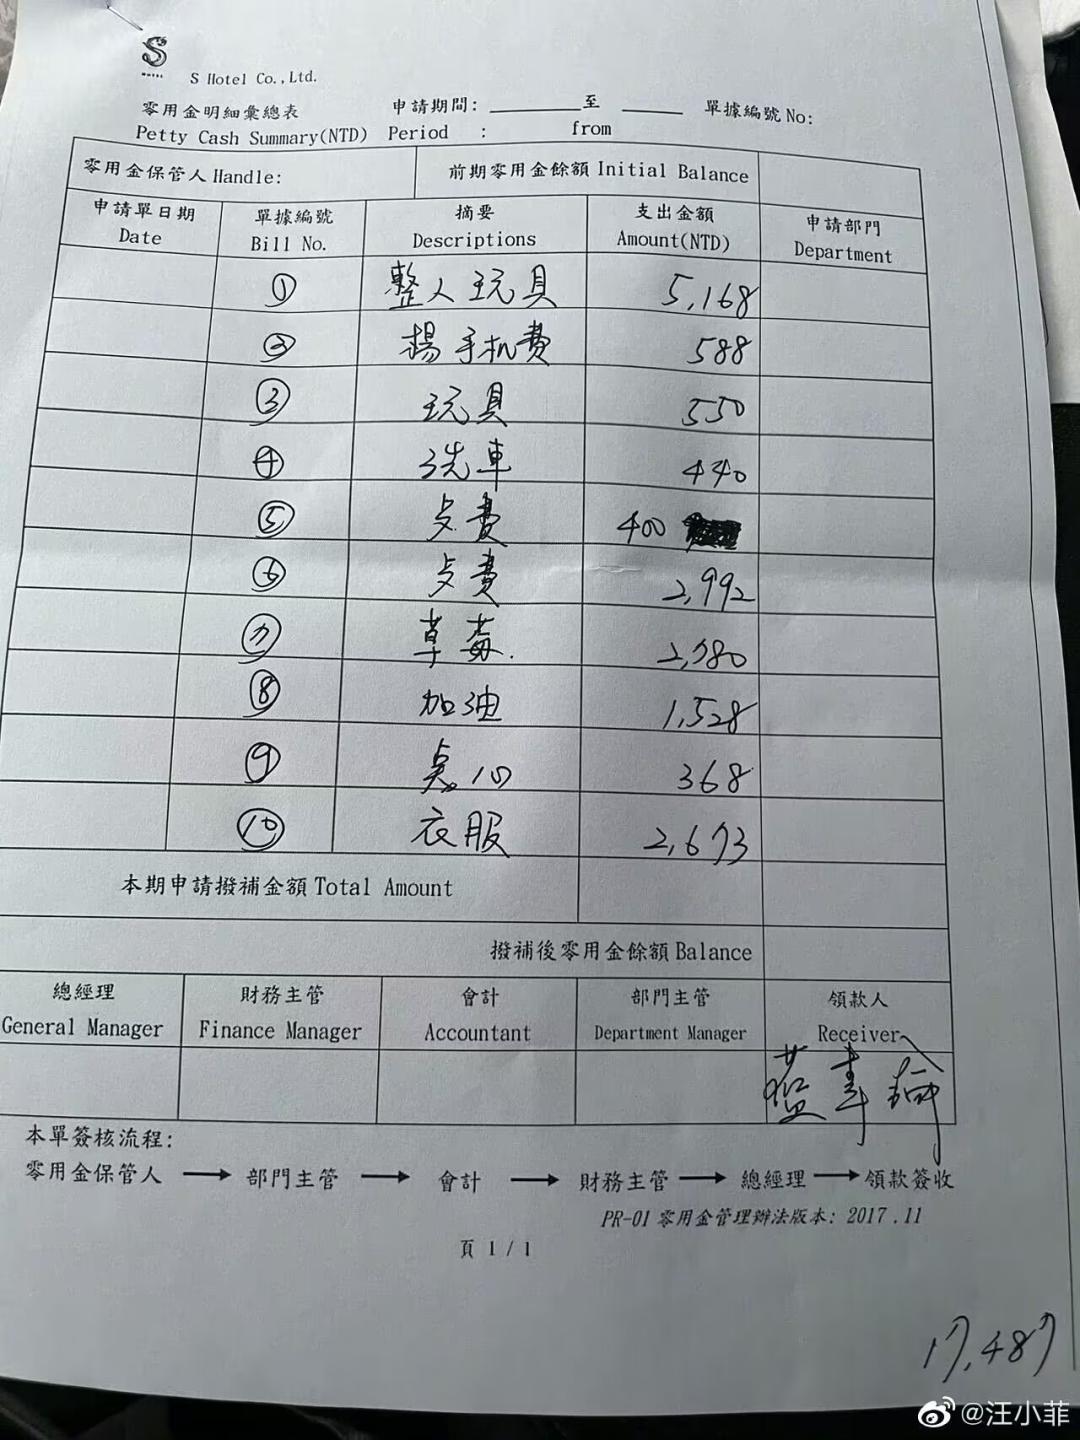 S
HOTEL
S Hotel Co.,Ltd.
零用金明細彙總表 申請期間: ______至 ____ 單據編號 No:
Petty Cash Summary(NTD) Period : from
零用金保管人 Handle: 前期零用金餘額 Initial Balance
申請單日期 單據編號 摘要 支出金額 申請部門
Date Bill No. Descriptions Amount(NTD) Department
① 整人玩具 5,168
② 楊手机費 588
③ 玩具 550
④ 洗車 440
⑤ 歺費 400
⑥ 歺費 2,992
⑦ 草莓. 2,780
⑧ 加油 1,528
⑨ 奌心 368
⑩ 衣服 2,673
本期申請撥補金額 Total Amount
撥補後零用金餘額 Balance
總經理 財務主管 會計 部門主管 領款人
General Manager Finance Manager Accountant Department Manager Receiver
本單簽核流程:
零用金保管人 → 部門主管 → 會計 → 財務主管 → 總經理 → 領款簽收
PR-01 零用金管理辦法版本: 2017.11
頁 1 / 1
17,487
@汪小菲